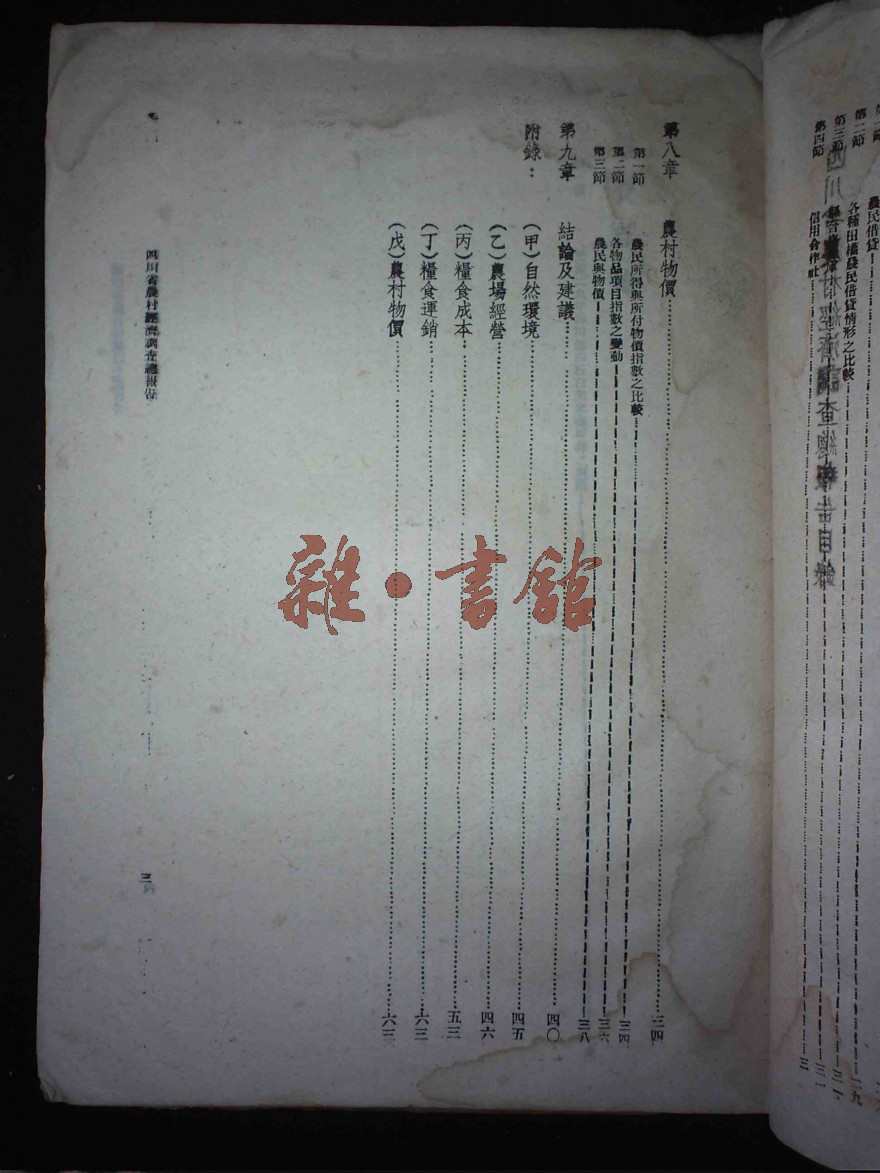 農民借貸
第二節 各種田權農民借貸情形之比較 二九
第三節
第四節 信用合作社
第八章 農村物價 三四
第一節 農民所得與所付物價指數之比較 三四
第二節 各物品項目指數之變動 三六
第三節 農民與物價 三八
第九章 結論及建議 四〇
附錄：
（甲）自然環境 四五
（乙）農場經營 四六
（丙）糧食成本 五三
（丁）糧食運銷 六三
（戊）農村物價
四川省農村經濟調查總報告
雜·書館